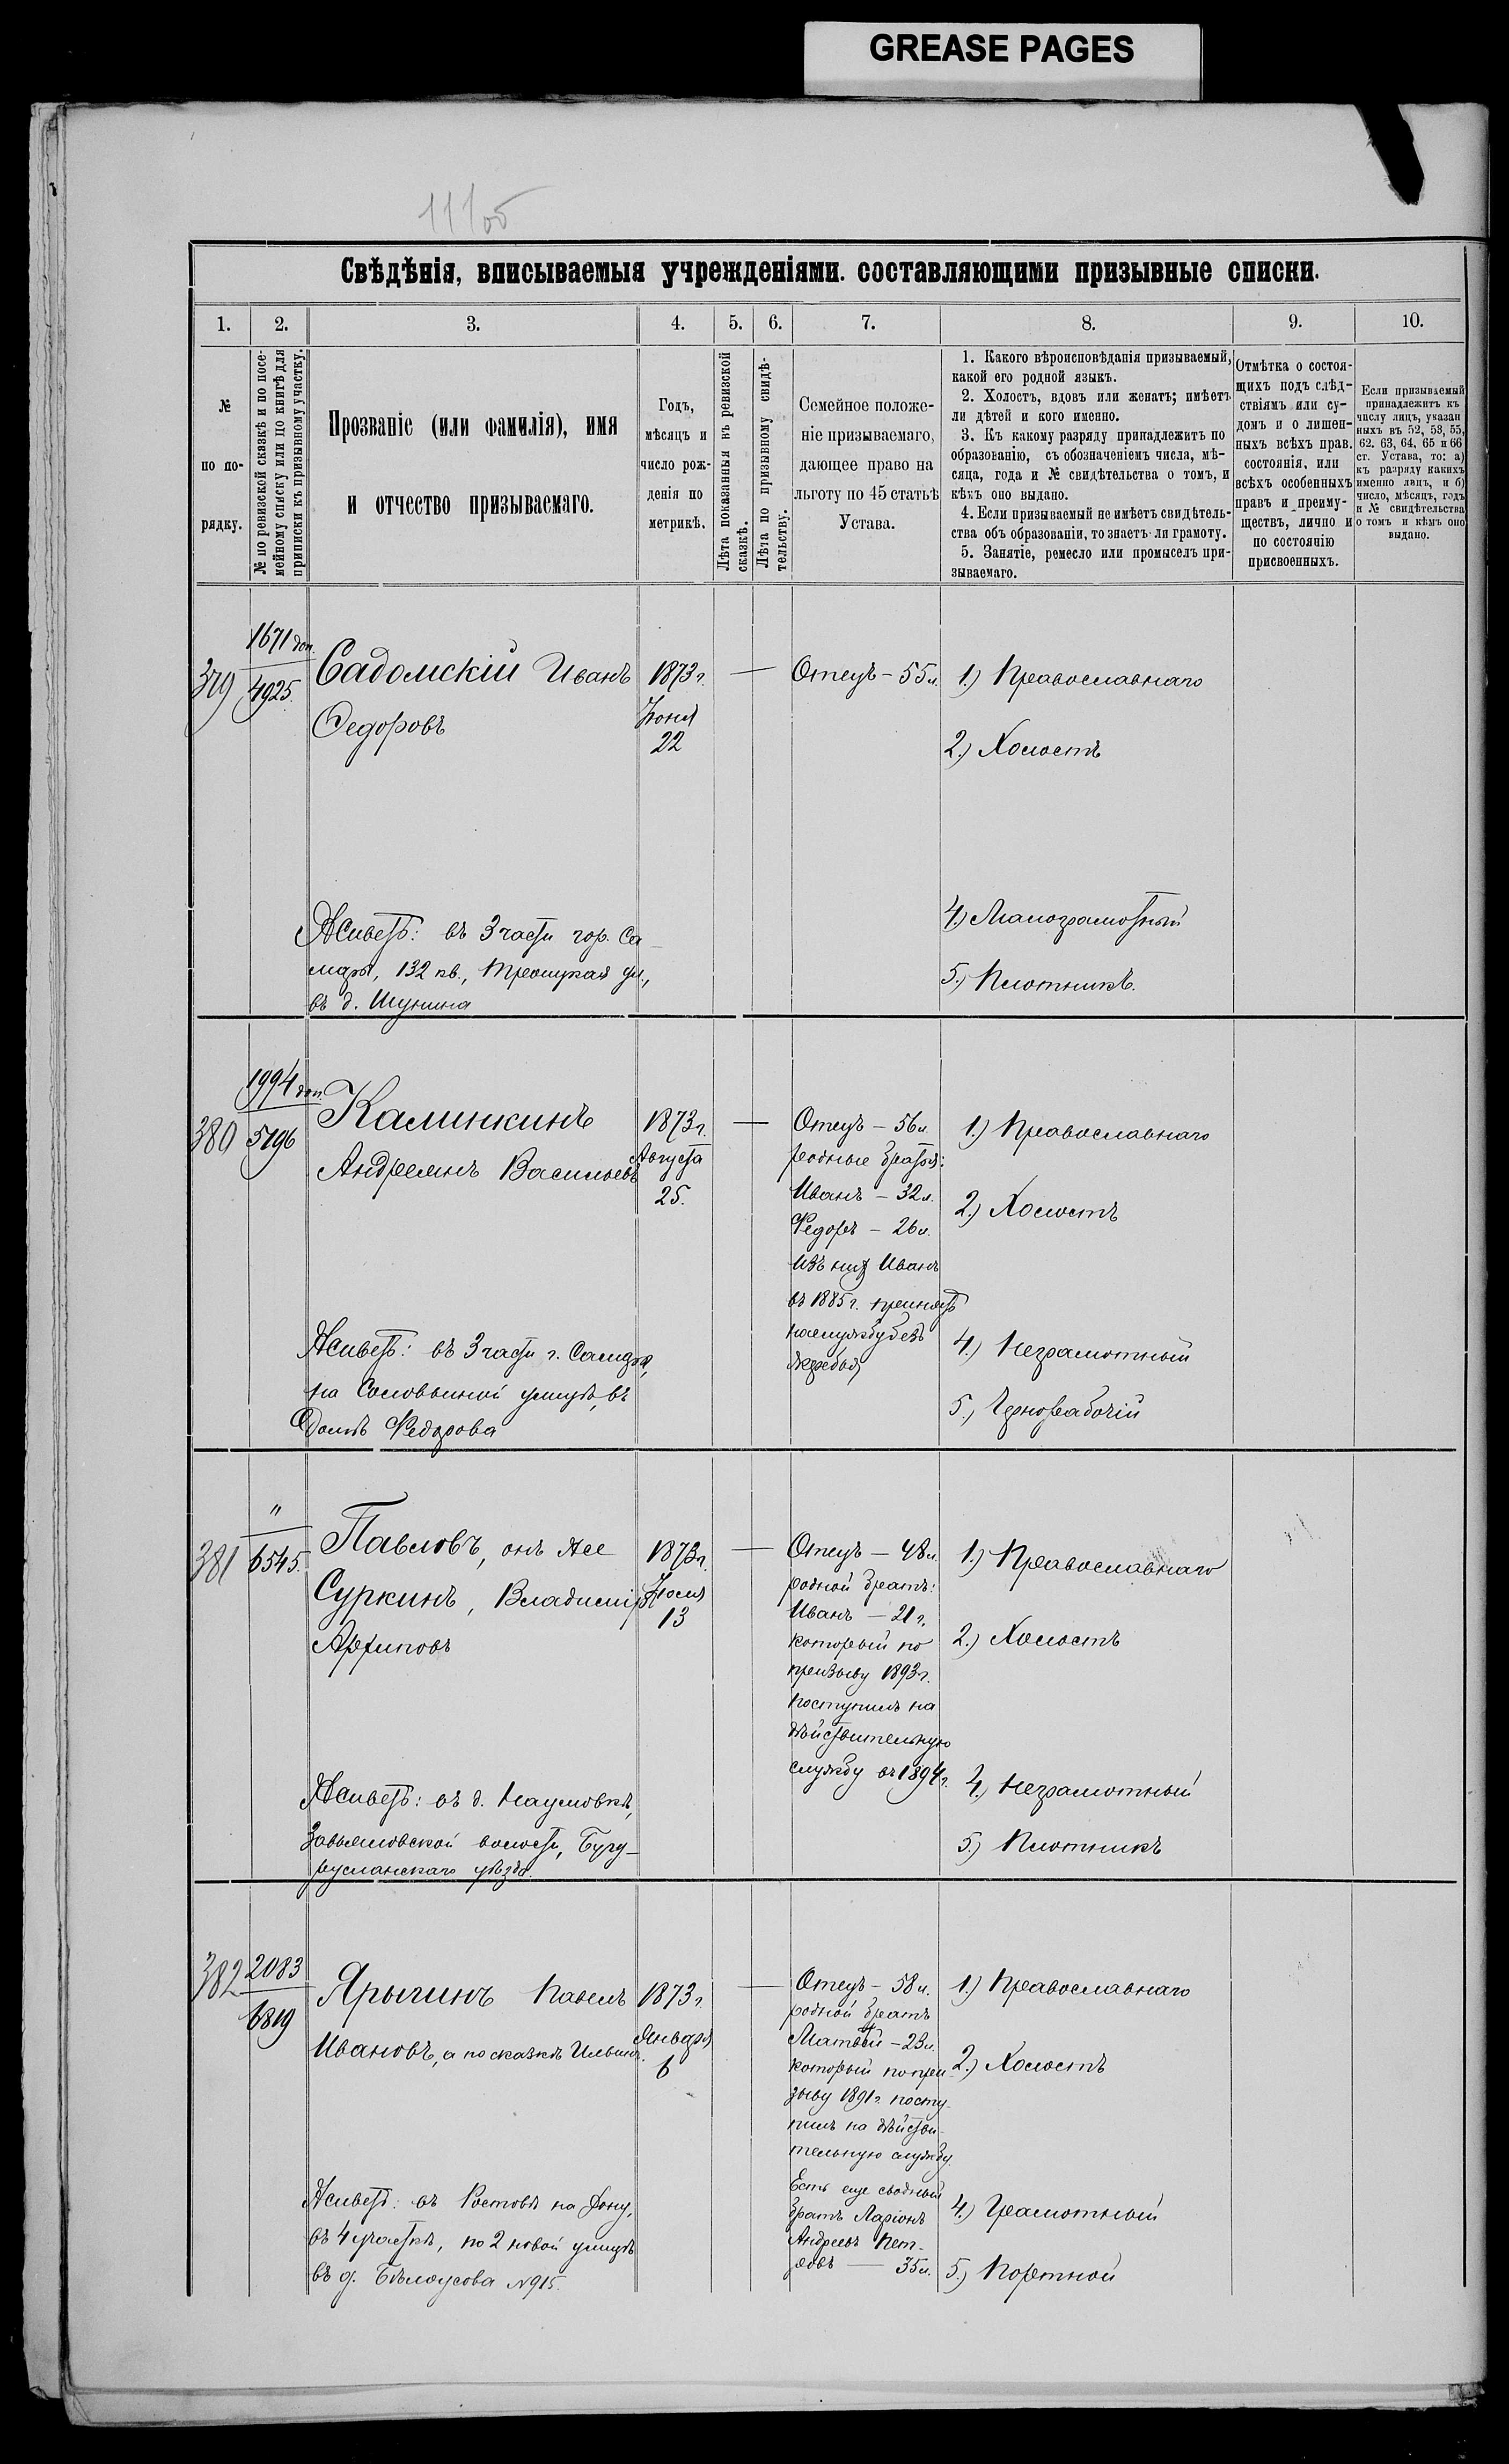 GREASE PAGES
11/об
Свѣдѣнія, вписываемыя учрежденіями. составляющими призывные списки.
1. 2. 3. 4. 5. 6. 7. 8. 9. 10.
№
по по-
рядку.
№ по ревизской сказкѣ и по посе-
мейному списку или по книгѣ для
приписки къ призывному участку.
Прозваніе (или фамилія), имя
и отчество призываемаго.
Годъ,
мѣсяцъ и
число рож-
денія по
метрикѣ.
Лѣта показанныя въ ревизской
сказкѣ.
Лѣта по призывному свидѣ-
тельству.
Семейное положе-
ніе призываемаго,
дающее право на
льготу по 45 статьѣ
Устава.
1. Какого вѣроисповѣданія призываемый,
какой его родной языкъ.
2. Холостъ, вдовъ или женатъ; имѣетъ
ли дѣтей и кого именно.
3. Къ какому разряду принадлежитъ по
образованію, съ обозначеніемъ числа, мѣ-
сяца, года и № свидѣтельства о томъ, и
кѣмъ оно выдано.
4. Если призываемый не имѣетъ свидѣтель-
ства объ образованіи, то знаетъ-ли грамоту.
5. Занятіе, ремесло или промыселъ при-
зываемаго.
Отмѣтка о состоя-
щихъ подъ слѣд-
ствіямъ или су-
домъ и о лишен-
ныхъ всѣхъ прав.
состоянія, или
всѣхъ особенныхъ
правъ и преиму-
ществъ, лично и
по состоянію
присвоенныхъ.
Если призываемый
принадлежитъ къ
числу лицъ, указан
ныхъ въ 52, 53, 55,
62. 63, 64. 65 и 66
ст. Устава, то: а)
къ разряду какихъ
именно лицъ, и б)
число, мѣсяцъ, годъ
и № свидѣтельства
о томъ и кѣмъ оно
выдано.
379
1671 доп.
4925.
Садомскій Иванъ
Федоровъ
1873 г.
Іюня
22
—
Отецъ – 55 л.
1.) Православнаго
2.) Холостъ
4.) Малограмотный
5.) Плотникъ.
Живетъ: въ 3 части гор. Са-
мары, 132 кв., Троицкая ул.,
въ д. Шунина
380
1994 доп.
5196
Калинкинъ
Андреянъ Васильевъ
1873 г.
Августа
25.
—
Отецъ – 56 л.
родные братья:
Иванъ – 32 л.
Федоръ – 26 л.
Изъ них Иванъ
въ 1885 г. принятъ
на службу безъ
жребья
1.) Православнаго
2.) Холостъ
4.) Неграмотный
5.) Чернорабочій
Живетъ: въ 3 части г. Самары,
на Соловьиной улицѣ, въ
Домѣ Федорова
381
"
6545.
Павловъ, онъ же
Суркинъ, Владиміръ
Архиповъ
1873 г.
Іюля
13
—
Отецъ – 48 л.
родной братъ:
Иванъ – 21 г.
который по
призыву 1893 г.
поступилъ на
дѣйствительную
службу въ 1894 г.
1.) Православнаго
2.) Холостъ
4.) Неграмотный
5.) Плотникъ
Живетъ: въ д. Наумовкѣ,
Завьяловской волости, Бугу-
русланскаго уѣзда.
382
2083
6819
Ярыгинъ Павелъ
Ивановъ, а по сказкѣ Ильинъ.
1873 г.
Января
6
—
Отецъ – 58 л.
родной братъ
Матвѣй – 23 л.
который по при-
зыву 1891 г. посту-
пилъ на дѣйстви-
тельную службу.
Есть еще сводный
братъ Ларіонъ
Андреевъ Пет-
ровъ — 35 л.
1.) Православнаго
2.) Холостъ
4.) Грамотный
5.) Портной
Живетъ: въ Ростовѣ на Дону,
въ 4 участкѣ, по 2 новой улицѣ
въ д. Бѣлоусова №915.